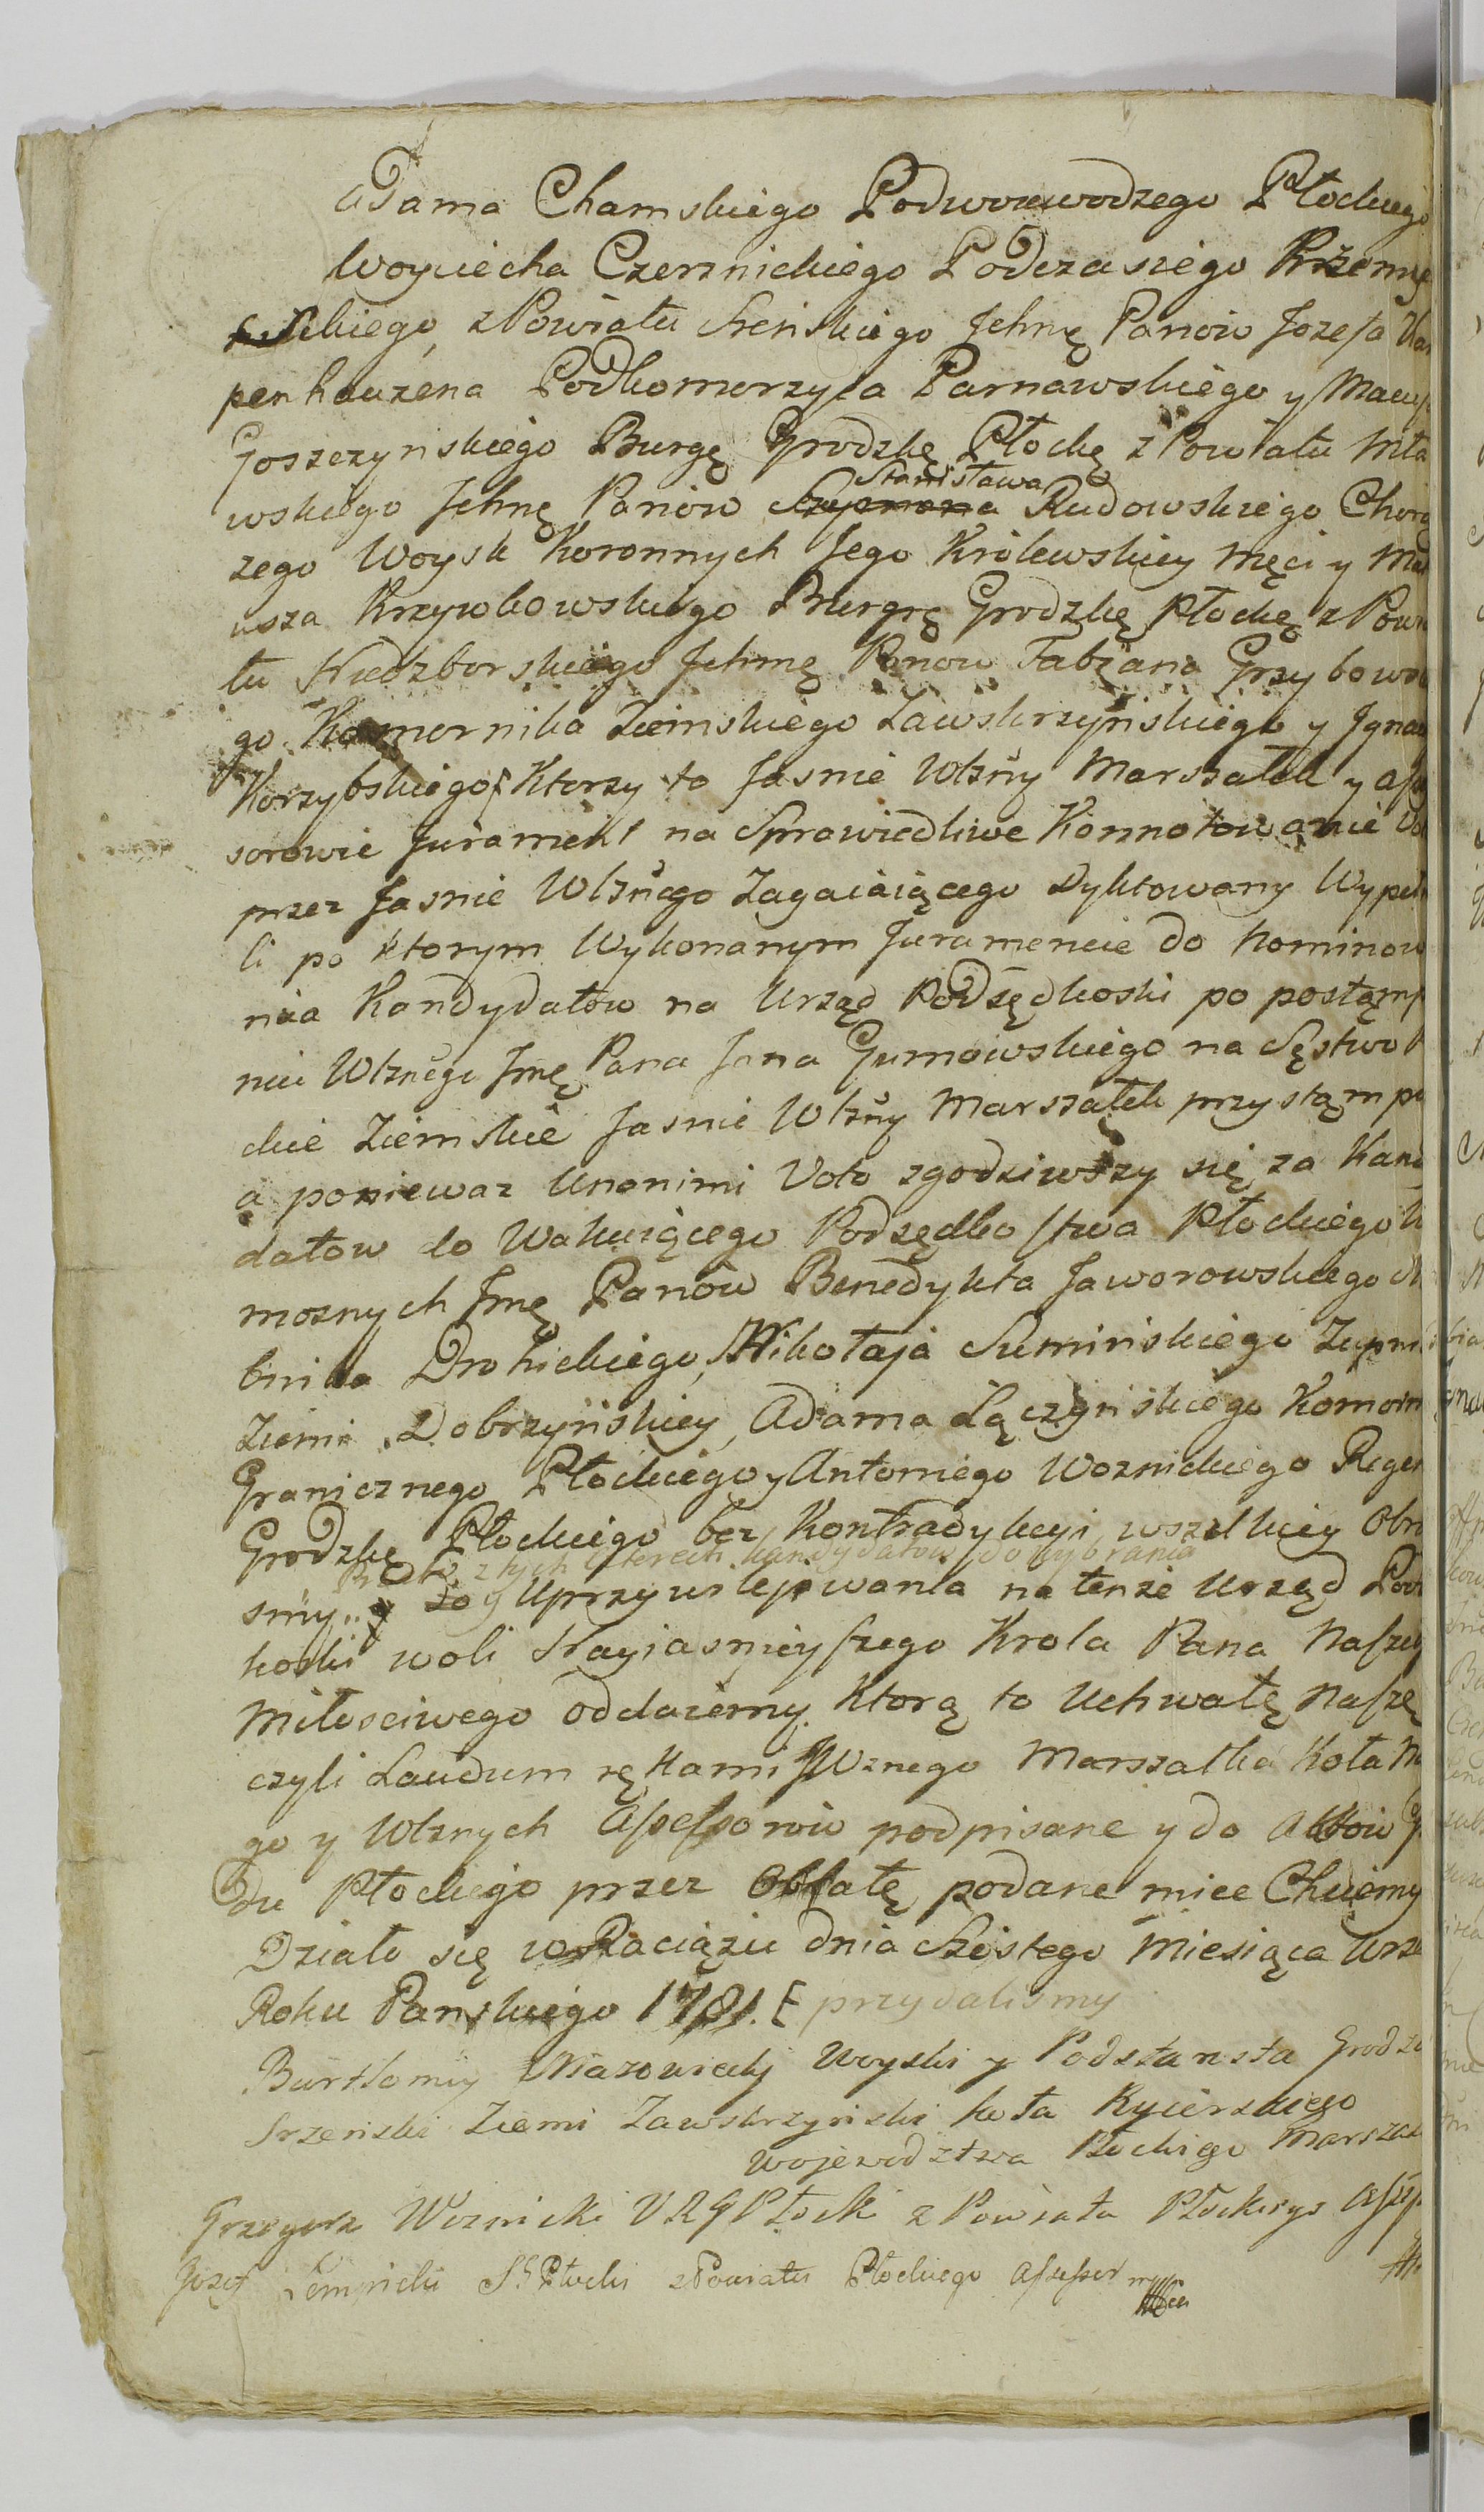 Adama Chamskiego Podwoiewodzego Płockiego
Woyciecha Czernickiego Podczasiego Rożemy
skiego, z Powiatu Sreńskiego Jchmę Panow Jozefa Kar
penhauzena Podkomorzyca Parnawskiego y Mac
Goszczyńskiego Burgę Grodzkę Płockę z Powiatu Mła
wskiego Jchmę Panow Szymona Stanisława Rudowskiego Chorą
zego Woysk Koronnych Jego Królewskiey Męci y Ma
usza Krzywkowskiego Burgrę Grodzkę Płockę z Powia
tu Niedzborskiego Jchmę Panow Fabiana Grzybows
go Komornika Ziemskiego Zawskrzyńskiego y Igna
Korzybskiego Ktorzy to Jasnie Wlżny Marszałek y Asse
sorowie Jurament na Sprawiedliwe Konnotowanie Vo
przez Jasnie Wlżnego Zagaiaiącego Dyktowany Wypeł
li po ktorym Wykonanym Juramencie do nominow
nia Kandydatow na Urząd Podsędkoski po postąmp
niu Wlznego Jmę Pana Jana Gumowskiego na Sęstwo P
ckie Ziemskie Jasnie Wlżny Marszałek przystąmp
a poniewaz Unanimi Voto zgodziwszy się za Kand
datow do Wakuiącego Podsędkostwa Płockiego W
moznych Jmę Panow Benedykta Jaworowskiego
bnika Drohickiego, Mikołaja Sumińskiego Zupni
Ziemi Dobrzyńskiey, Adama Łączyńskiego Komorn
Granicznego Płockiego y Antoniego Woznickiego Regen
Grodzkę Płockiego bez Kontradykcyi wszelkiey Obra
z tych czterech kandydatow do wybrania
smy.. y do Uprzywilejowania na tenze Urząd Pod
koski woli Nayiasnieyszego Krola Pana Naszeg
Miłosciwego oddaiemy Ktorą to Uchwałę Naszę
czyli Laudum rękami JWznego Marszałka Koła N
go y Wlznych Assessorow podpisane y do Aktow G
du Płockiego przez Oblatę podane miec Chcemy
Działo się w Raciążu dnia Szostego Miesiąca Wrze
Roku Panskiego 1781. [ przydalismy
Bartłomiy Mazowiecki Woyski y Podstarsta Grodz
Srzeński Ziemi Zawskrzyński Koła Rycierskiego
Wojewodztwa Płockiego Marszał
Grzegorz Woznicki V R G Płocki z Powiatu Płockiego Assess
Jozef Łempicki Sk Płocki z Powiatu Płockiego Assessor mpp